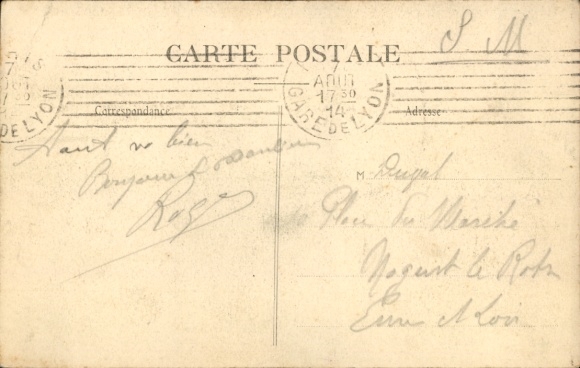 S. M
CARTE POSTALE
AOUT
17 30
14
GARE DE LYON
DE LYON
Correspondance
Adresse
Tout va bien
Bonjour
Roger
M Dugal
Place du Marché
Nogent le Rotr
Eure et Loir